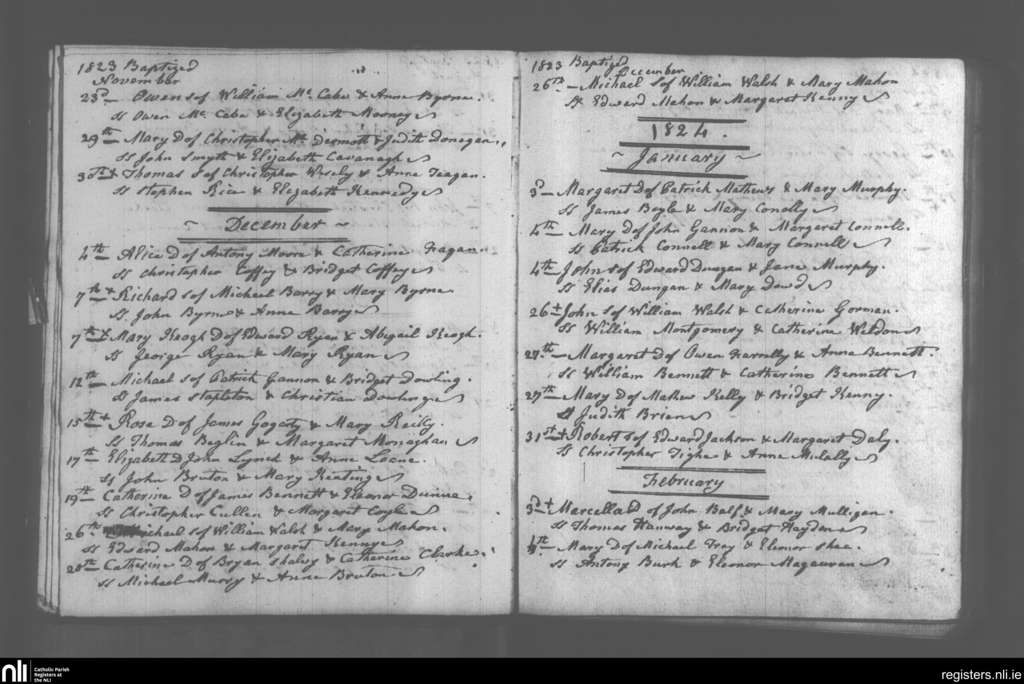 1823 Baptized
November
23d Owen S of William Mc Cabe & Anne Byrne.
Ss Owen Mc Cabe & Elizabeth Mooney
29th Mary D of Christopher Mc Dermott & Judith Donegan,
Ss John Smyth & Elizabeth Cavanagh
30th + Thomas S of Christopher Wesely & Anne Feagan.
Ss Stephen Rice & Elezabeth Kennedy
~ December ~
4th Alice D of Antony Moore & Catherine Fragan
Ss Christopher Coffey & Bridget Coffey
7th + Richard S of Michael Barry & Mary Byrne
Ss John Byrne & Anne Barry
7th + Mary Keogh D of Edward Ryan & Abigail Keogh.
Ss George Ryan & Mary Ryan
12th Michael S of Patrick Gannon & Bridget Dowling.
Ss James Stapleton & Christian Dowling
15th + Rose D of James Gogarty & Mary Reilly.
Ss Thomas Beglin & Margaret Monaghan
17th Elizabeth D John Lynch & Anne
Ss John Bruton & Mary Keating
19th Catherine D of James Bennett & Eleanor Dunne,
Ss Christopher Cullen & Margaret Coyle
26th Michael S of William Walsh & Mary Mahon.
Ss Edward Mahon & Margaret Kenny
28th Catherine D of Bryan & Catherine Clarke.
Ss Michael Murry & Anne Bruton
1823 Baptized
December
26th Michael S of William Walsh & Mary Mahon
Ss Edward Mahon & Margaret Kenny
1824.
~ January ~
3d Margaret D of Patrick Mathews & Mary Murphy.
Ss James Boyle & Mary Conolly
4th Mary D of John Gannon & Margaret Connell.
Ss Patrick Connell & Mary Connell
4th John S of Edward Dungan & Jane Murphy.
Ss Elias Dungan & Mary Dowd
26 + John S of William Walsh & Catherine Gorman.
Ss William Montgomery & Catherine Weldon
27th Margaret D of Owen Farrelly & Anne Bennett.
Ss William Bennett & Catherine Bennett
27th Mary D of Mathew Kelly & Bridget Kenny.
St Judith Brien
31st + Robert S of Edward Jackson & Margaret Daly.
Ss Christopher Tighe & Anne Mulally
February
3d + Marcella D of John Balf & Mary Mulligan.
Ss Thomas Hanway & Bridget Hayden
4th Mary D of Michael Fray & Elenor Shea.
Ss Antony Burk & Eleonor Magauran
nli
Catholic Parish
Registers at
the NLI
registers.nli.ie